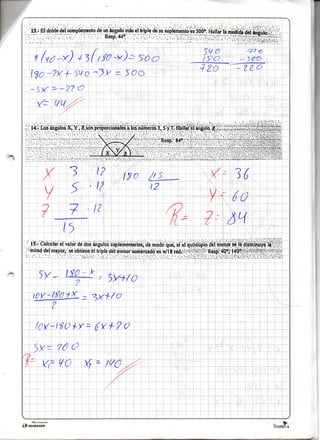 13.- El doble del complemento de un ángulo más el triple de su suplemento es 500º. Hallar la medida del ángulo.
Resp. 44º
2(90-x) + 3(180-x) = 500
180 - 2x + 540 - 3x = 500
-5x = -220
x = 44
540
180
720
720
- 500
220
14.- Los ángulos X, Y, Z son proporcionales a los números 3, 5 y 7. Hallar el ángulo Z
Resp. 84º
X 3 · 12
Y 5 · 12
Z 7 · 12
15
180 / 15
12
X = 36
Y = 60
R = Z = 84
15.- Calcular el valor de dos ángulos suplementarios, de modo que, si al quíntuplo del menor se le disminuye la mitad del mayor, se obtiene el triple del menor
Resp. 40º; 140º
5x - (180 - x)/2 = 3x + 10
(10x - 180 + x)/2 = 3x + 10
10x - 180 + x = 6x + 20
5x = 200
R = x₁ = 40 x₂ = 140